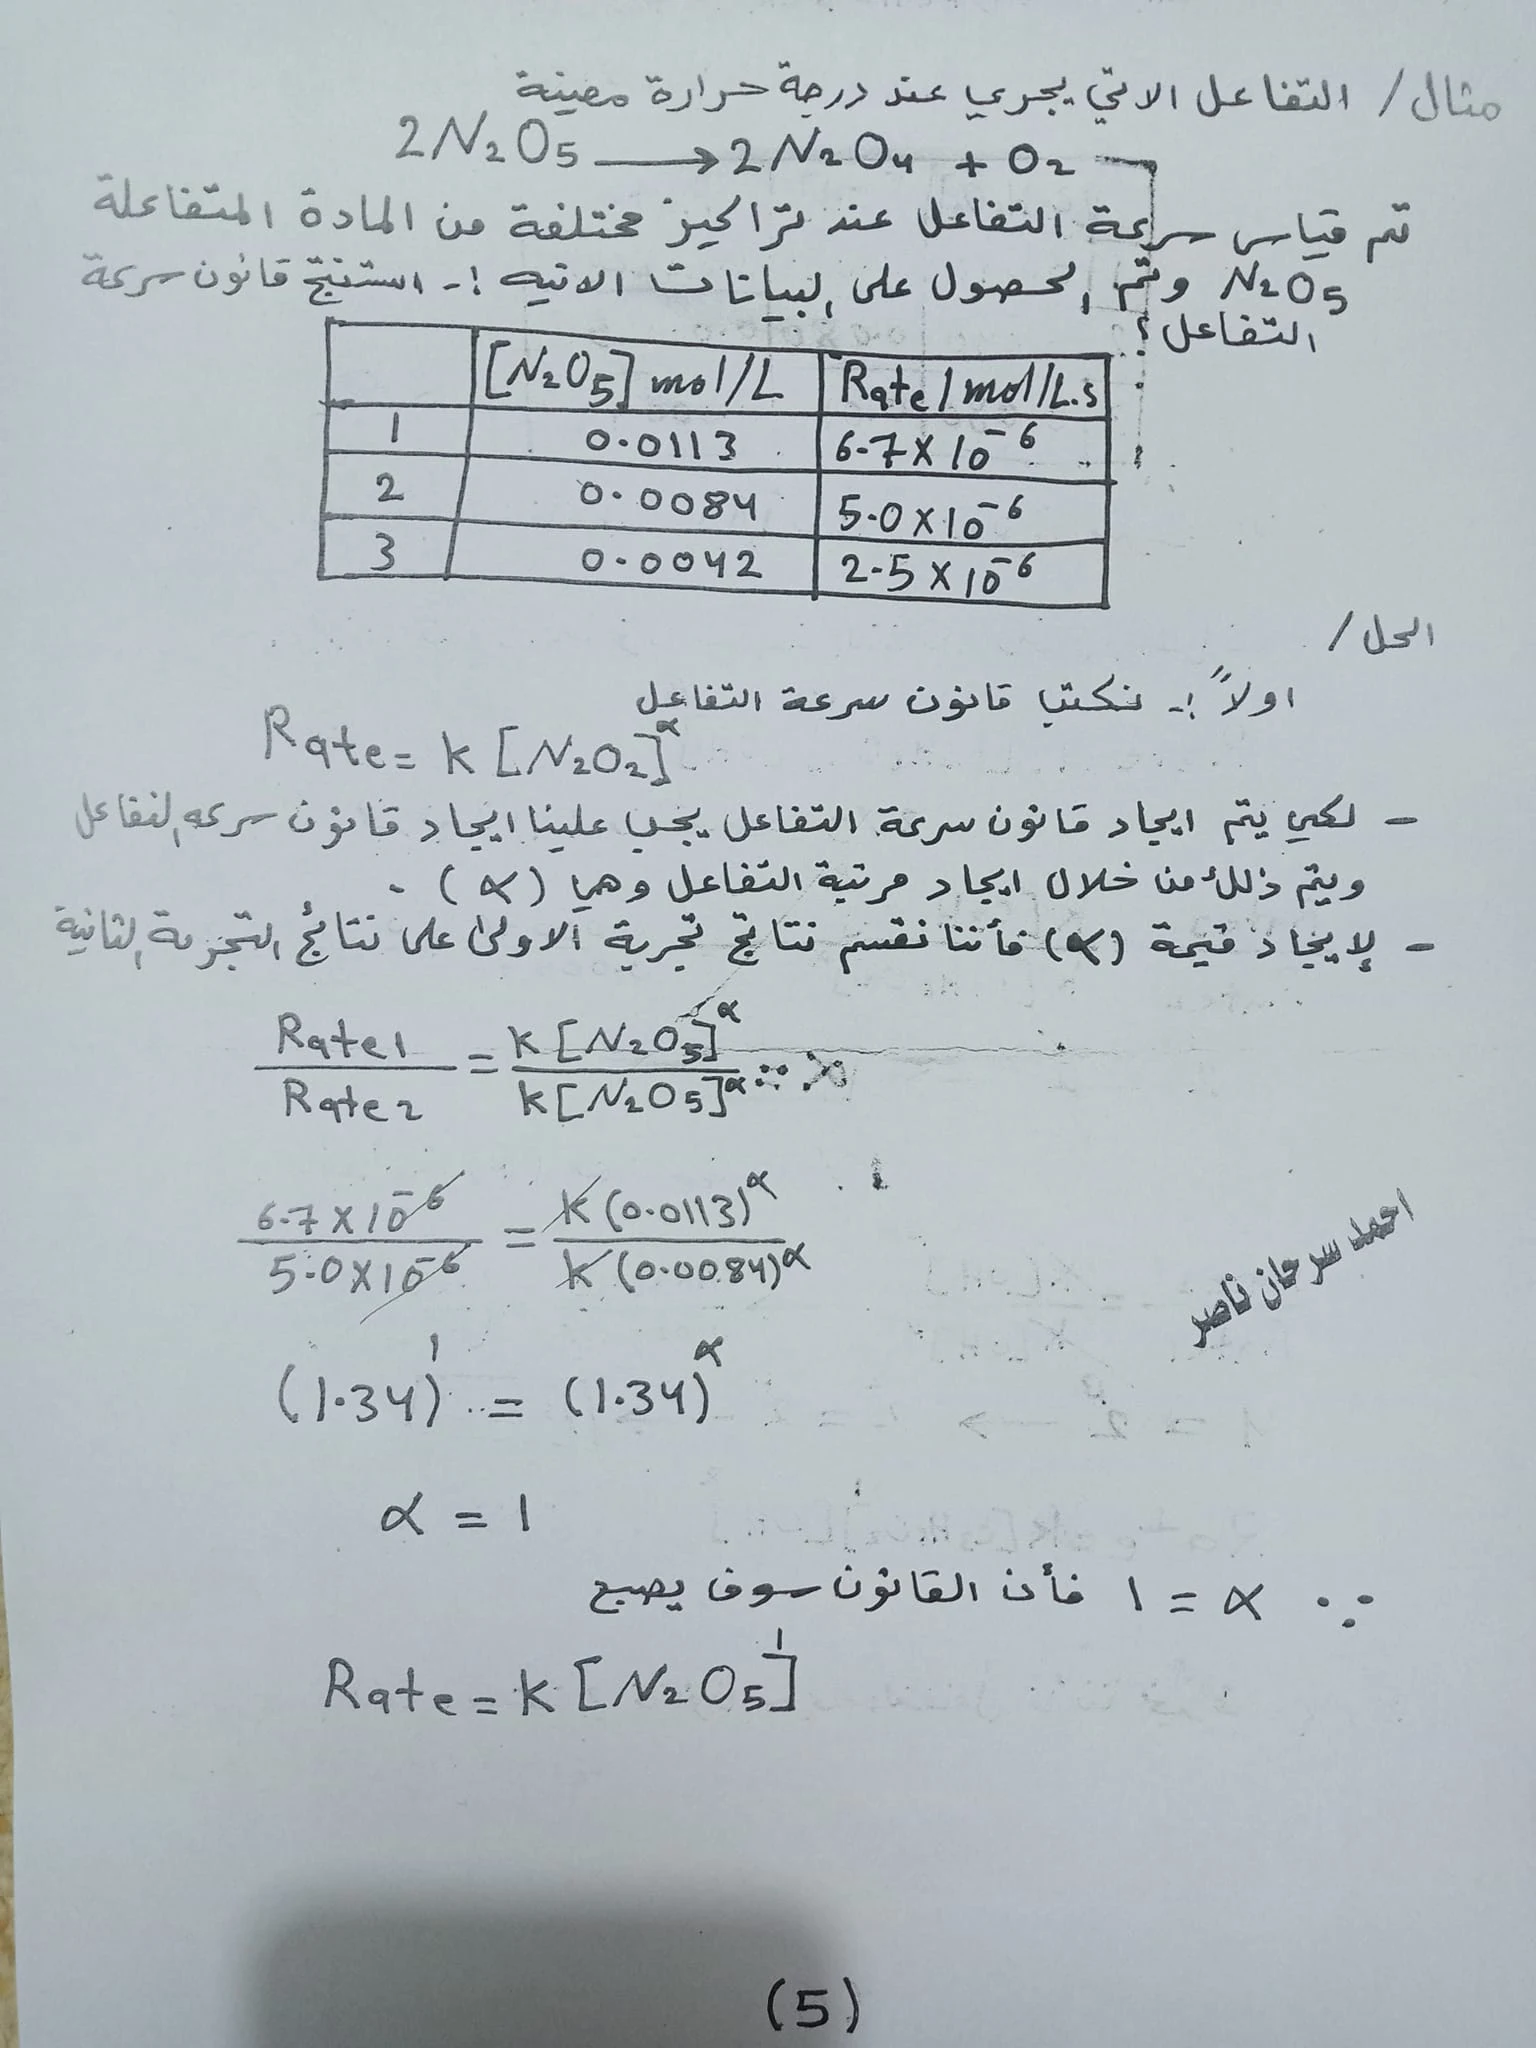 مثال / التفاعل الاتي يجري عند درجة حرارة معينة
2N₂O₅ → 2N₂O₄ + O₂
تم قياس سرعة التفاعل عند تراكيز مختلفة من المادة المتفاعلة
N₂O₅ وتم الحصول على البيانات الاتيه :- استنتج قانون سرعة
التفاعل ؟
[N₂O₅] mol/L Rate/mol/L.s
1 0.0113 6.7 X 10⁻⁶
2 0.0084 5.0 X 10⁻⁶
3 0.0042 2.5 X 10⁻⁶
الحل /
اولاً :- نكتب قانون سرعة التفاعل
Rate = k [N₂O₂]^α
- لكي يتم ايجاد قانون سرعة التفاعل يجب علينا ايجاد قانون سرعه التفاعل
ويتم ذلك من خلال ايجاد مرتبة التفاعل وهي (α) .
- لإيجاد قيمة (α) فأننا نقسم نتائج تجربة الاولى على نتائج التجربة الثانية
Rate1 / Rate2 = k [N₂O₅]^α / k [N₂O₅]^α
6.7 X 10⁻⁶ / 5.0 X 10⁻⁶ = k (0.0113)^α / k (0.0084)^α
احمد سرحان ناصر
(1.34)¹ = (1.34)^α
α = 1
∵ α = 1 فأن القانون سوف يصبح
Rate = k [N₂O₅]¹
(5)